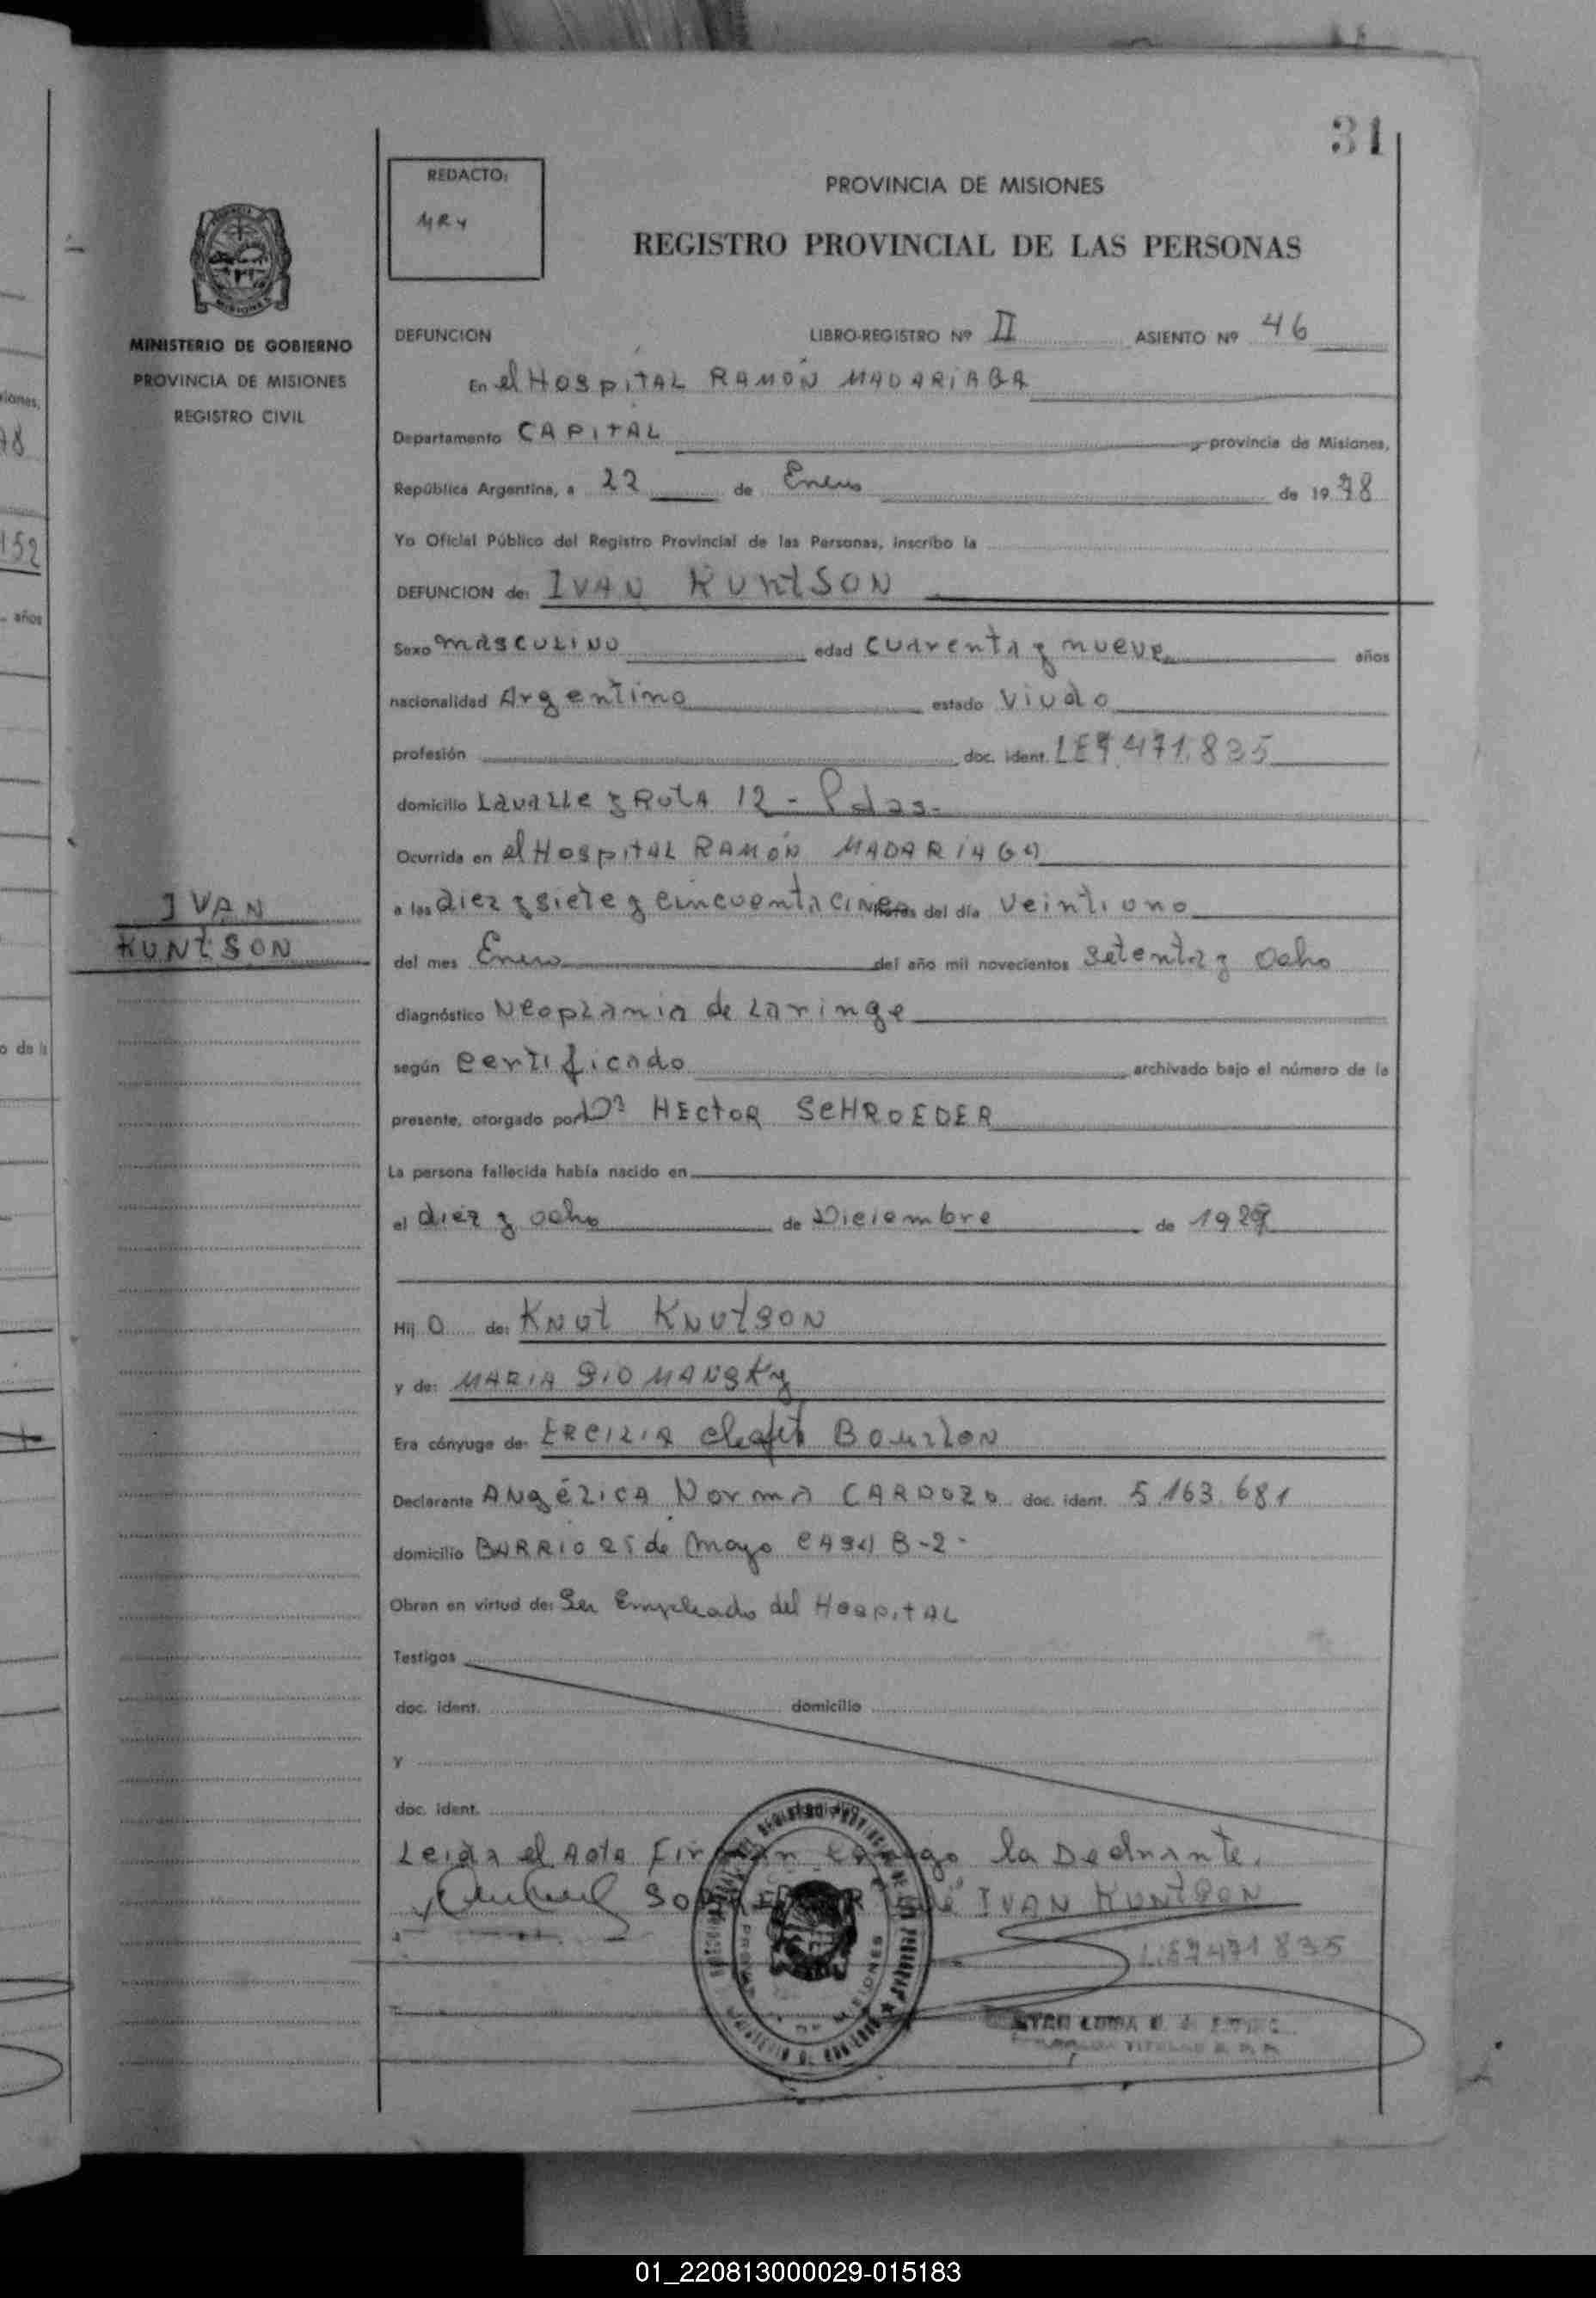 31
REDACTO:
PROVINCIA DE MISIONES
REGISTRO PROVINCIAL DE LAS PERSONAS
MINISTERIO DE GOBIERNO
PROVINCIA DE MISIONES
REGISTRO CIVIL
DEFUNCION LIBRO-REGISTRO Nº II ASIENTO Nº 46
En el HospitAL RAMÓN MADARiAGA
Departamento CAPITAL provincia de Misiones,
República Argentina, a 22 de Enero de 1978
Yo Oficial Público del Registro Provincial de las Personas, inscribo la
DEFUNCION de: IVAN KUNtSON
Sexo mASCULINO edad CUArentA y nueve años
nacionalidad Argentino estado Viudo
profesión doc. ident. LE7.471.835
domicilio LavaLLe y RutA 12 - Pdas.
Ocurrida en el HospitAL RAMÓN MADARiAGA
a las diez y siete y cincuentA CINco horas del día Veintiuno
IVAN
KUNtSON
del mes Enero del año mil novecientos setentA y Ocho
diagnóstico NeopLAnia de LAringe
según certificado archivado bajo el número de la
presente, otorgado por Dr HEctoR SCHROEDER
La persona fallecida había nacido en
el diez y ocho de Diciembre de 1928
Hij O de: KNUt KNUtSON
y de: MARIA SIOMANSKy
Era cónyuge de: ERCILIA BOURLON
Declarante ANgÉLICA NormA CARDOZO doc. ident. 5.163.681
domicilio BARRIO 25 de Mayo CASA B-2-
Obran en virtud de: Ser Empleado del HospitAL
Testigos
doc. ident. domicilio
Y
doc. ident.
LeidA el ActA FirmAn conmigo la DeclArAnte.
SOBRE José IVAN KUNtSON
LE7471835
01_220813000029-015183